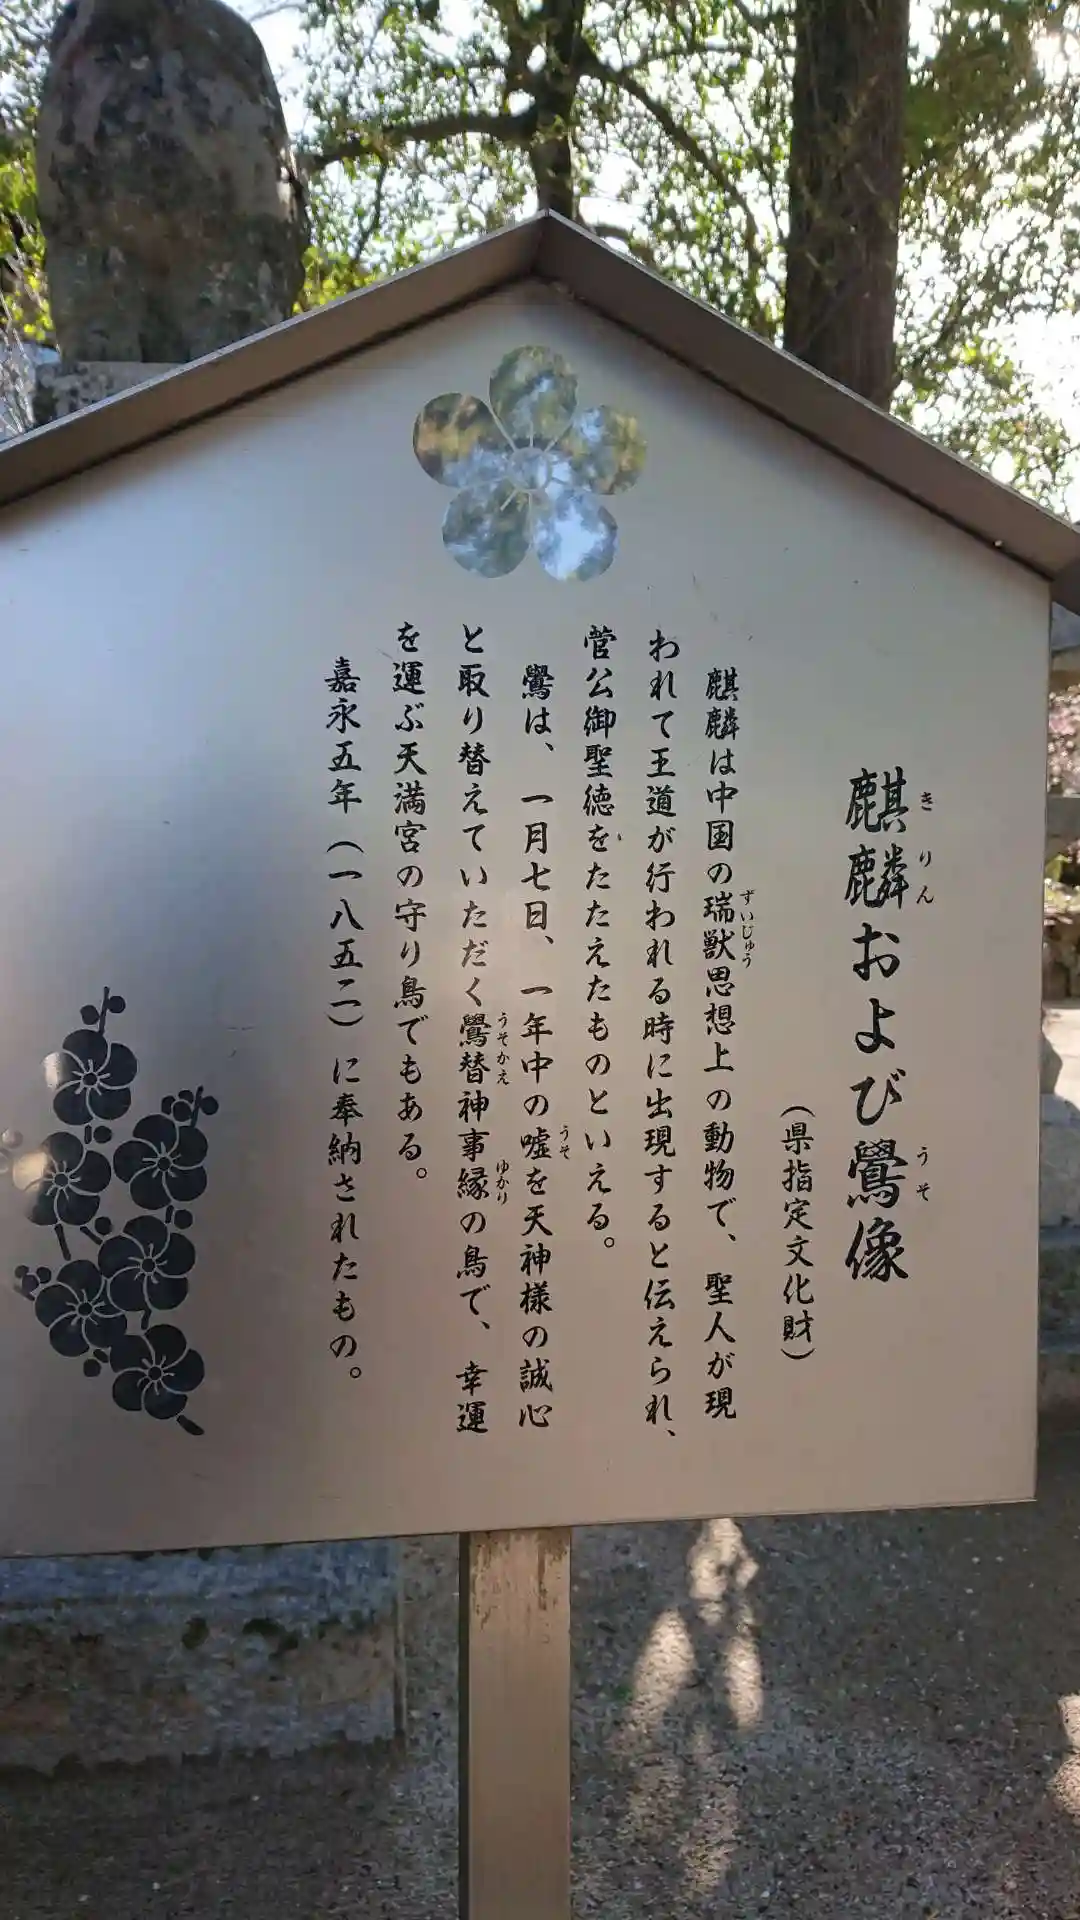 麒麟および鷽像
きりん
うそ
（県指定文化財）
麒麟は中国の瑞獣思想上の動物で、聖人が現
ずいじゅう
われて王道が行われる時に出現すると伝えられ、
菅公御聖徳をたたえたものといえる。
鷽は、一月七日、一年中の嘘を天神様の誠心
うそ
と取り替えていただく鷽替神事縁の鳥で、幸運
うそかえ
ゆかり
を運ぶ天満宮の守り鳥でもある。
嘉永五年（一八五二）に奉納されたもの。